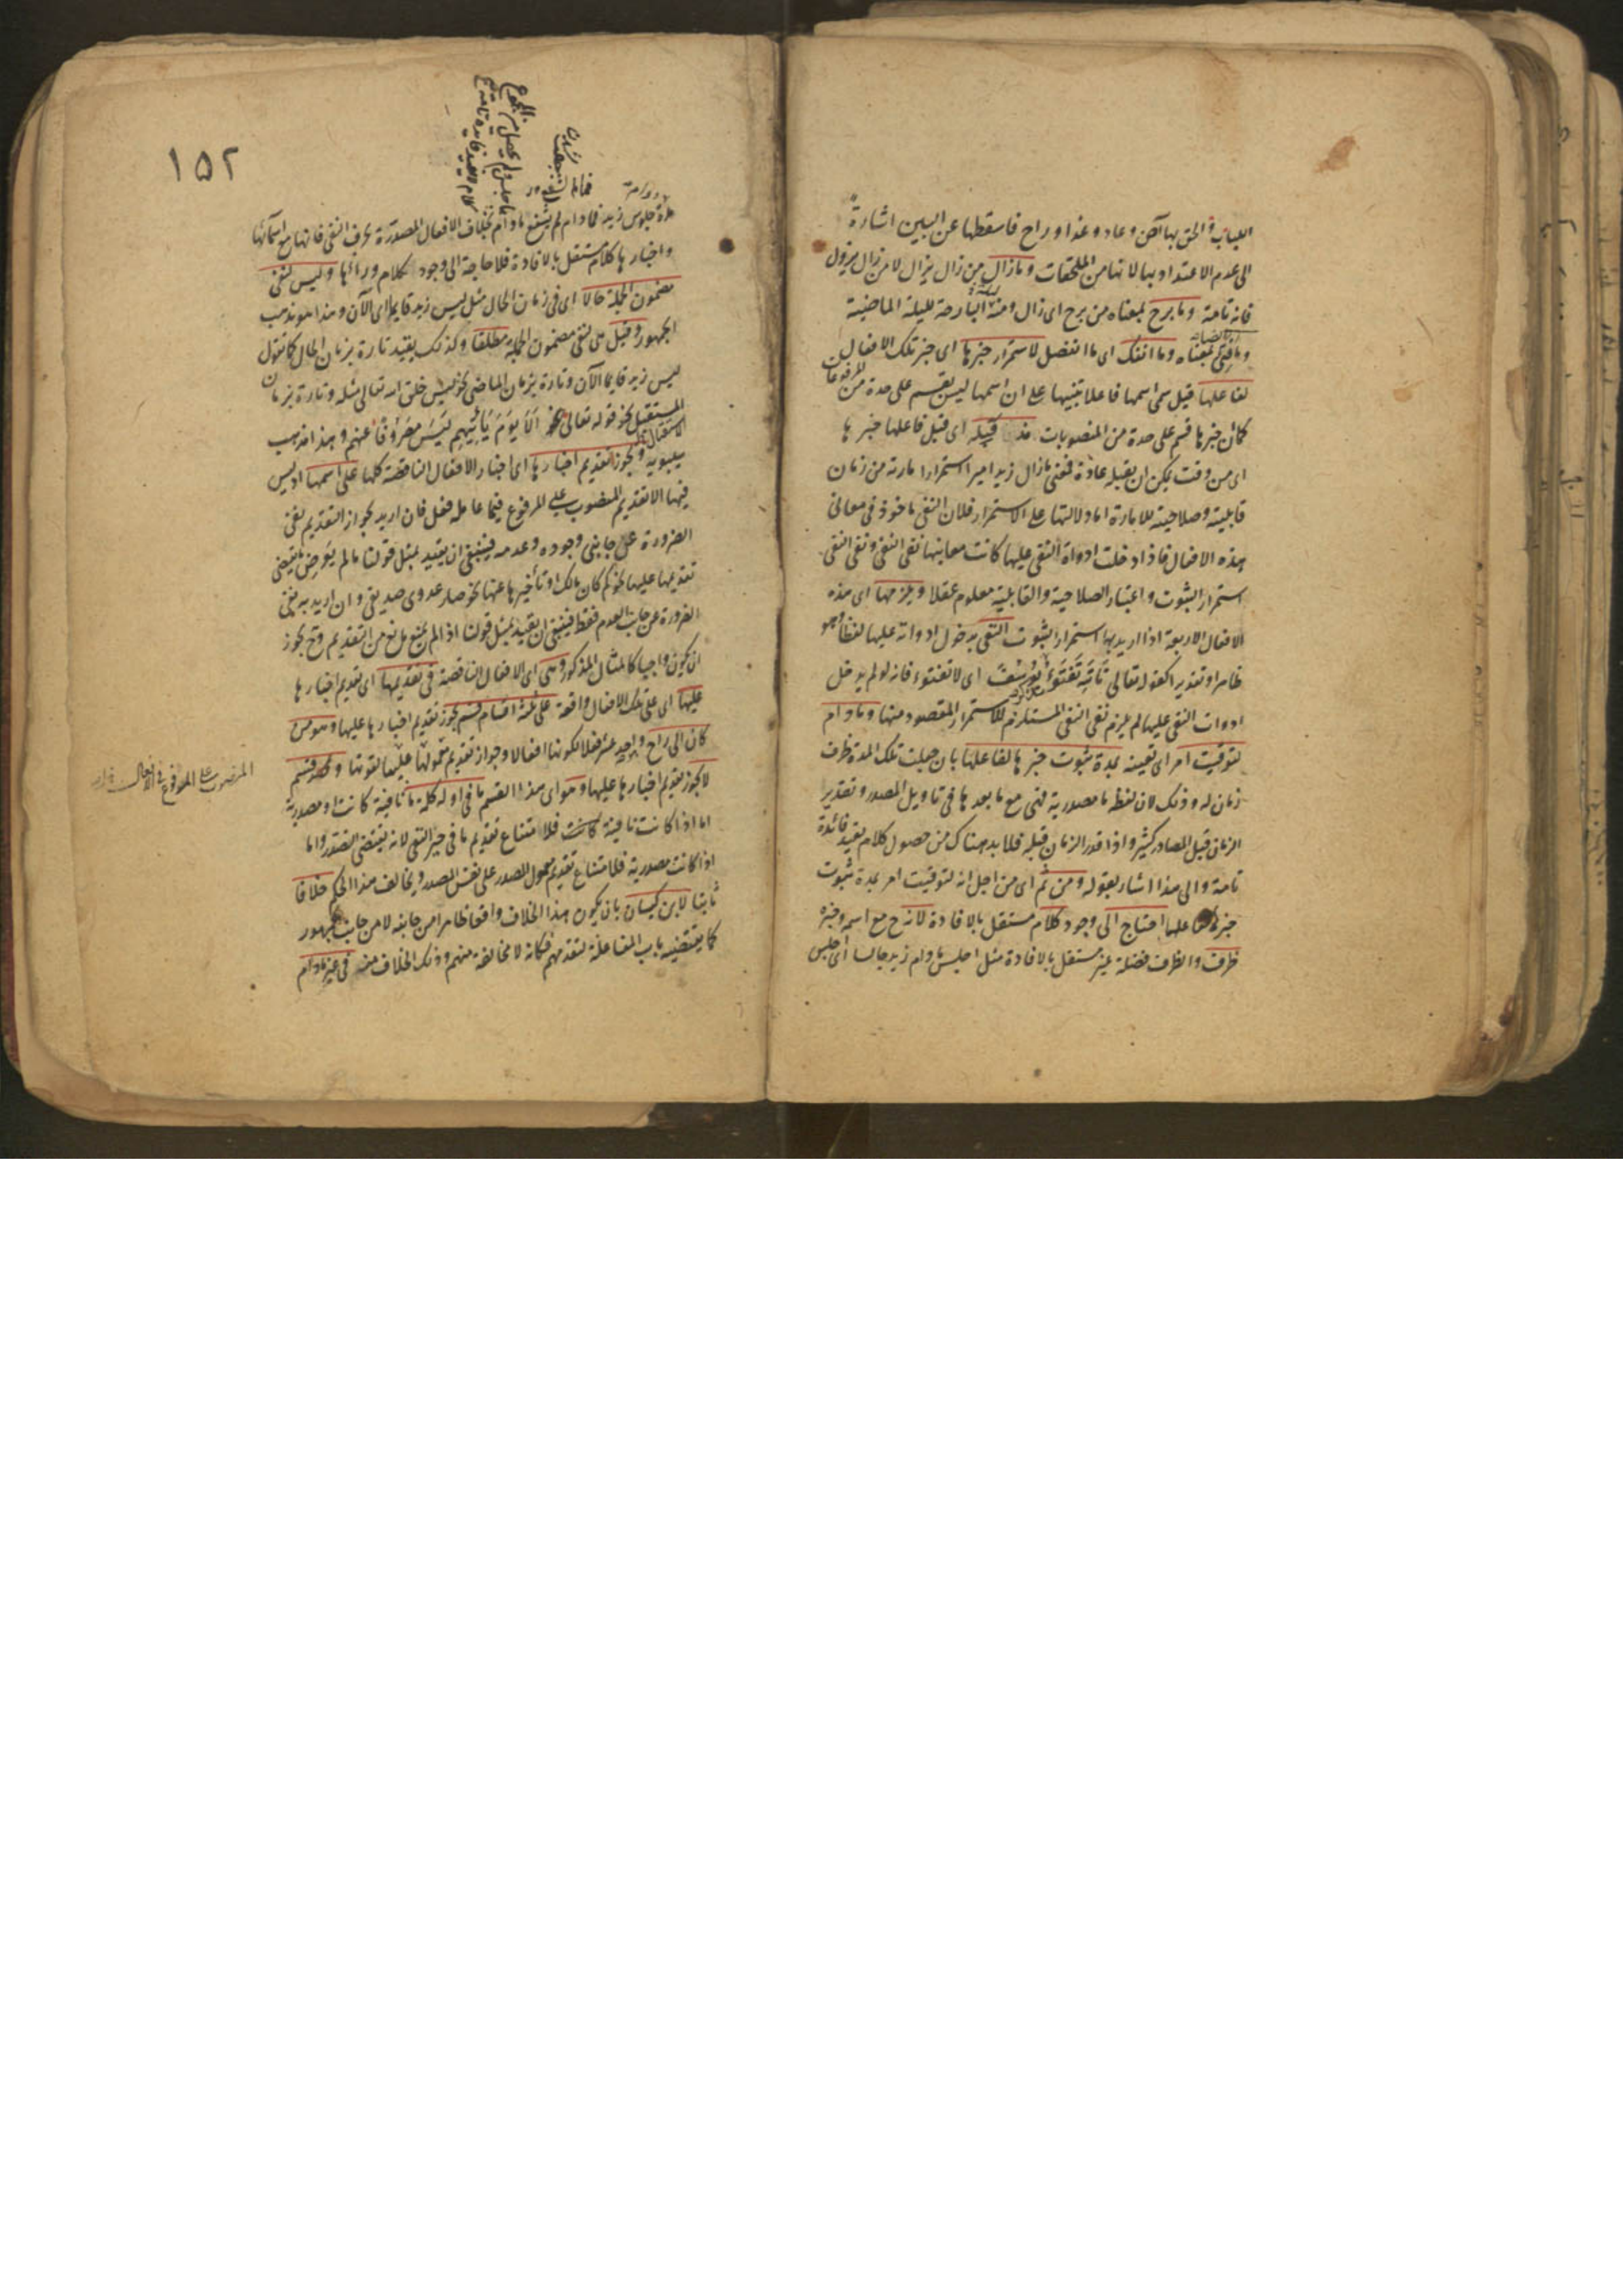 اللباب والحق بها آض وعاد وغدا وراح فاسقطها عن البين اشارة
الى عدم الاعتداد بها لانها من الملحقات وما زال من زال يزال لا من زال يزول
فانه تامة وما برح بمعناه من برح اى زال ومنه البارحة لليلة الماضية
وما فتئ بمعناه وما انفك اى ما انفصل لاستمرار خبرها اى خبر تلك الافعال
لفاعلها قيل سمى اسمها فاعلا تنبيها على ان اسمها ليس بقسم على حدة من المرفوعات
كما ان خبرها قسم على حدة من المنصوبات مذ قبله اى قبل فاعلها خبرها
اى من وقت يمكن ان يقبله عادة فمعنى ما زال زيد اميرا استمرار امارته من زمان
قابليته وصلاحيته للامارة اما دلالتها على الاستمرار فلان النفى ماخوذ فى معانى
هذه الافعال فاذا دخلت ادواة النفى عليها كانت معانيها نفى النفى ونفى النفى
استمرار الثبوت واعتبار الصلاحية والقابلية معلوم عقلا ويلزمها اى هذه
الافعال الاربعة اذا اريد بها استمرار الثبوت النفى بدخول ادواته عليها لفظا وهو
ظاهر او تقديرا كقوله تعالى تَاللهِ تَفْتَؤُ يُوسُفَ اى لا تفتؤ فانه لو لم يدخل
ادوات النفى عليها لم يلزم نفى النفى المستلزم للاستمرار المقصود منها وما دام
لتوقيت امر اى تعيينه بمدة ثبوت خبرها لفاعلها بان جعلت تلك المدة ظرف
زمان له وذلك لان لفظة ما مصدرية فهى مع ما بعدها فى تاويل المصدر وتقدير
الزمان قبل المصادر كثير واذا قدر الزمان قبله فلا بد هناك من حصول كلام يفيد فائدة
تامة والى هذا اشار بقوله ومن ثم اى من اجل انه لتوقيت امر بمدة ثبوت
خبرها لفاعلها احتاج الى وجود كلام مستقل بالافادة لانه ح مع اسمه وخبره
ظرف والظرف فضلة غير مستقل بالافادة مثل اجلس ما دام زيد جالسا اى اجلس
١٥٢
مدة جلوس زيد فما دام لم يشفع ما دام بخلاف الافعال المصدرة بحرف النفى فانها مع اسمائها
واخبارها كلام مستقل بالافادة فلا حاجة الى وجود كلام وراءها وليس لنفى
مضمون الجملة حالا اى فى زمان الحال مثل ليس زيد قايما اى الآن وهذا هو مذهب
الجمهور وقيل هى لنفى مضمون الجملة مطلقا وكذلك يقيد تارة بزمان الحال كما تقول
ليس زيد قايما الآن وتارة بزمان الماضى نحو ليس خلق الله تعالى مثله وتارة بزمان
المستقبل نحو قوله تعالى اَلَا يَوْمَ يَأْتِيهِمْ لَيْسَ مَصْرُوفًا عَنْهُمْ وهذا مذهب
سيبويه ويجوز تقديم اخبارها اى اخبار الافعال الناقصة كلها على اسمها اذ ليس
فيها الا تقديم المنصوب على المرفوع فيما عامله فعل فان اريد بجواز التقديم نفى
الضرورة عن جانبى وجوده وعدمه فينبغى ان يقيد بمثل قولنا ما لم يعرض ما يقتضى
تقديمها عليها نحو كم كان مالك او تأخيرها عنها نحو صار عدوى صديقى وان اريد به نفى
الضرورة عن جانب العدم فقط فينبغى ان يقيد بمثل قولنا اذا لم يمنع مانع من التقديم وح يجوز
ان يكون واجبا كالمثال المذكور وهى اى الافعال الناقصة فى تقديمها اى تقديم اخبارها
عليها اى على تلك الافعال واقعة على ثلثة اقسام قسم يجوز تقديم اخبارها عليها وهو من
كان الى راح واحد عشر فعلا لكونها افعالا وجواز تقديم معمولها عليها لقوتها وقسم
لا يجوز تقديم اخبارها عليها وهو اى هذا القسم ما فى اوله كلمة ما نافية كانت او مصدرية
اما اذا كانت نافية كانت فلامتناع تقديم ما فى حيز النفى لانه يقتضى التصدر واما
اذا كانت مصدرية فلامتناع تقديم معمول المصدر على نفس المصدر ويخالف هذا الحكم خلافا
ثابتا لابن كيسان بان يكون هذا الخلاف واقعا ظاهرا من جانبه لا من جانب الجمهور
كما يقتضيه باب المفاعلة لتقدمهم فكانه لا مخالفة منهم وذلك الخلاف منه فى غير ما دام
المنصوب على المرفوع فى الافعال